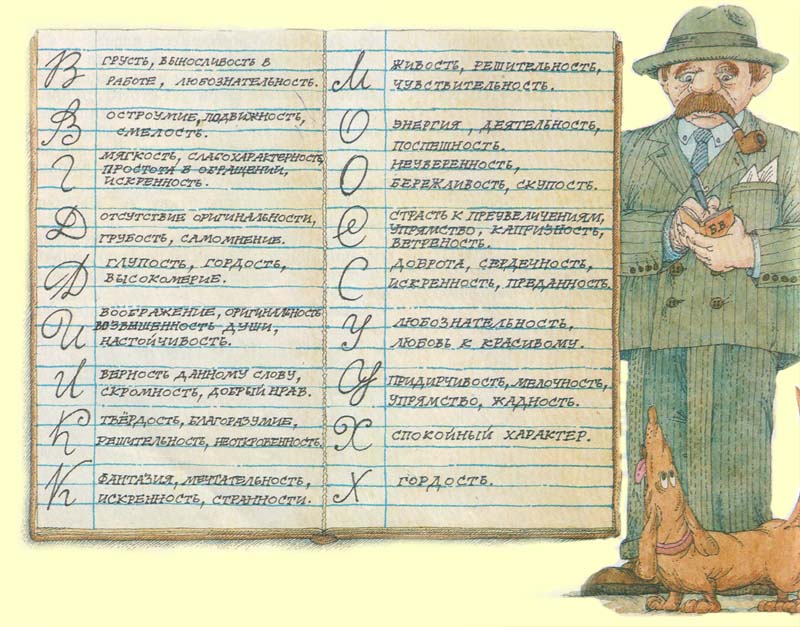 В
ГРУСТЬ, ВЫНОСЛИВОСТЬ В
РАБОТЕ, ЛЮБОЗНАТЕЛЬНОСТЬ.
В
ОСТРОУМИЕ, ПОДВИЖНОСТЬ,
СМЕЛОСТЬ.
Г
МЯГКОСТЬ, СЛАБОХАРАКТЕРНОСТЬ,
ПРОСТОТА В ОБРАЩЕНИИ,
ИСКРЕННОСТЬ.
Д
ОТСУТСТВИЕ ОРИГИНАЛЬНОСТИ,
ГРУБОСТЬ, САМОМНЕНИЕ.
Д
ГЛУПОСТЬ, ГОРДОСТЬ,
ВЫСОКОМЕРИЕ.
И
ВООБРАЖЕНИЕ, ОРИГИНАЛЬНОСТЬ
ВОЗВЫШЕННОСТЬ ДУШИ,
НАСТОЙЧИВОСТЬ.
И
ВЕРНОСТЬ ДАННОМУ СЛОВУ,
СКРОМНОСТЬ, ДОБРЫЙ НРАВ.
К
ТВЁРДОСТЬ, БЛАГОРАЗУМИЕ,
РЕШИТЕЛЬНОСТЬ, НЕОТКРОВЕННОСТЬ.
К
ФАНТАЗИЯ, МЕЧТАТЕЛЬНОСТЬ,
ИСКРЕННОСТЬ, СТРАННОСТИ.
М
ЖИВОСТЬ, РЕШИТЕЛЬНОСТЬ,
ЧУВСТВИТЕЛЬНОСТЬ.
О
ЭНЕРГИЯ, ДЕЯТЕЛЬНОСТЬ,
ПОСПЕШНОСТЬ.
О
НЕУВЕРЕННОСТЬ,
БЕРЕЖЛИВОСТЬ, СКУПОСТЬ.
С
СТРАСТЬ К ПРЕУВЕЛИЧЕНИЯМ,
УПРЯМСТВО, КАПРИЗНОСТЬ,
ВЕТРЕНОСТЬ.
С
ДОБРОТА, СЕРДЕЧНОСТЬ,
ИСКРЕННОСТЬ, ПРЕДАННОСТЬ.
У
ЛЮБОЗНАТЕЛЬНОСТЬ,
ЛЮБОВЬ К КРАСИВОМУ.
У
ПРИДИРЧИВОСТЬ, МЕЛОЧНОСТЬ,
УПРЯМСТВО, ЖАДНОСТЬ.
Х
СПОКОЙНЫЙ ХАРАКТЕР.
Х
ГОРДОСТЬ.
Б.В.